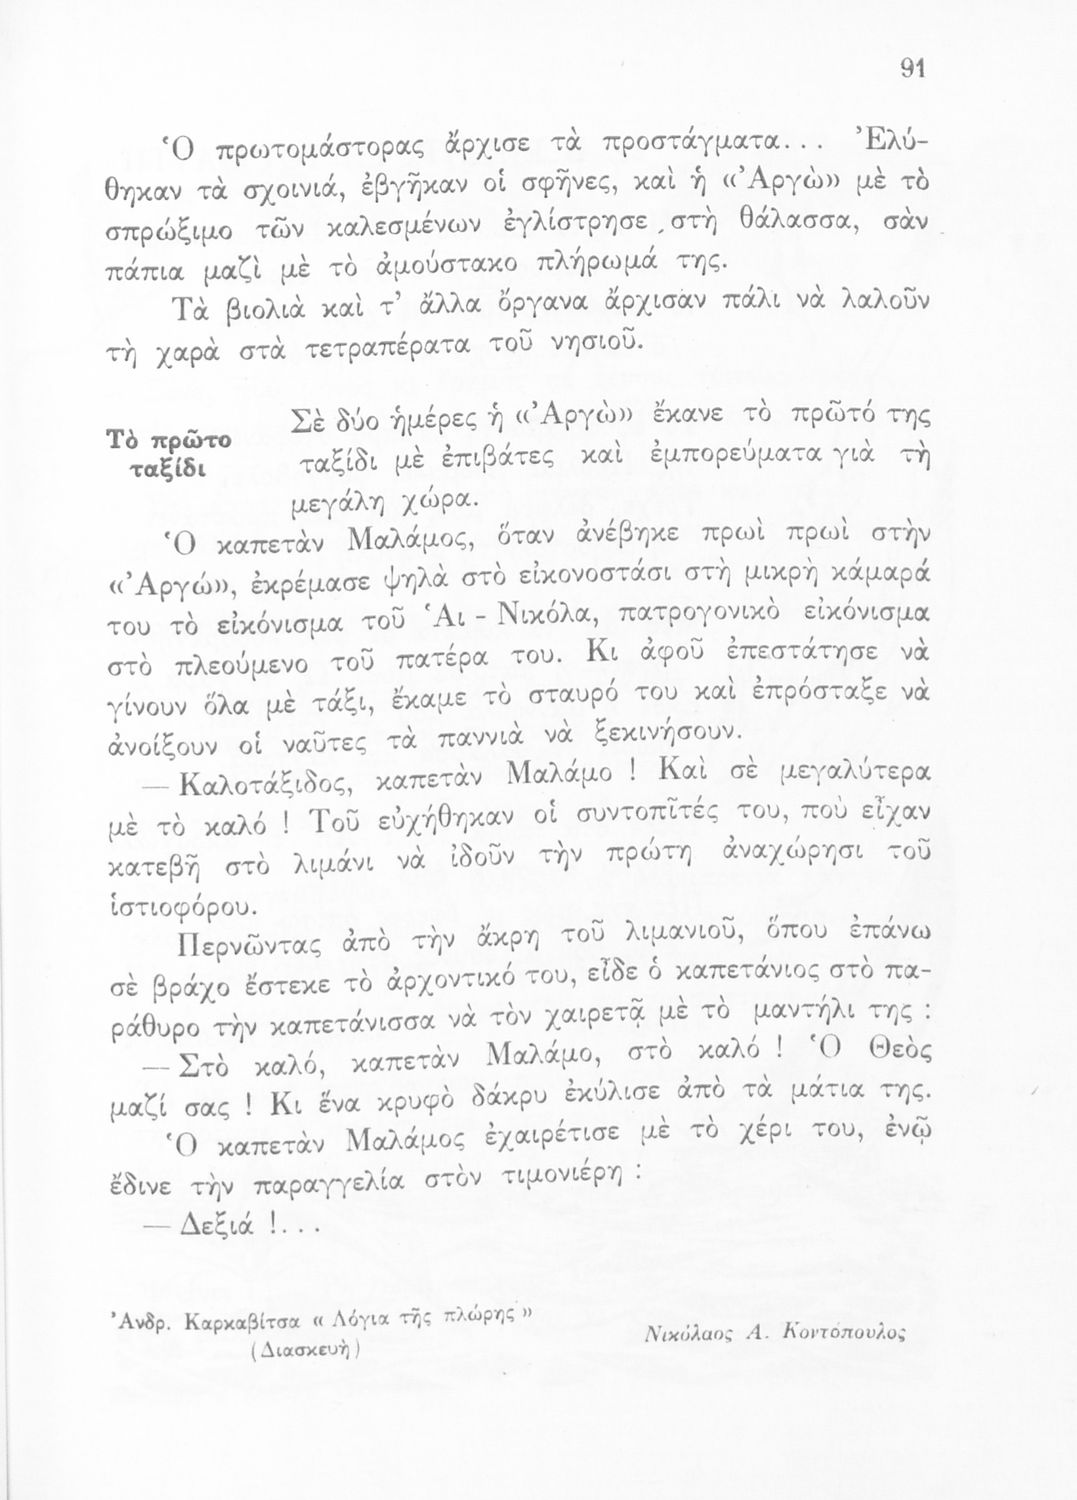 91
Ὁ πρωτομάστορας ἄρχισε τὰ προστάγματα... Ἐλύ-
θηκαν τὰ σχοινιά, ἐβγῆκαν οἱ σφῆνες, καὶ ἡ «Ἀργὼ» μὲ τὸ
σπρώξιμο τῶν καλεσμένων ἐγλίστρησε στὴ θάλασσα, σὰν
πάπια μαζὶ μὲ τὸ ἀμούστακο πλήρωμά της.
Τὰ βιολιὰ καὶ τ’ ἄλλα ὄργανα ἄρχισαν πάλι νὰ λαλοῦν
τὴ χαρὰ στὰ τετραπέρατα τοῦ νησιοῦ.
Τὸ πρῶτο
ταξίδι
Σὲ δύο ἡμέρες ἡ «Ἀργὼ» ἔκανε τὸ πρῶτό της
ταξίδι μὲ ἐπιβάτες καὶ ἐμπορεύματα γιὰ τὴ
μεγάλη χώρα.
Ὁ καπετὰν Μαλάμος, ὅταν ἀνέβηκε πρωὶ πρωὶ στὴν
«Ἀργώ», ἐκρέμασε ψηλὰ στὸ εἰκονοστάσι στὴ μικρὴ κάμαρά
του τὸ εἰκόνισμα τοῦ Ἁι - Νικόλα, πατρογονικὸ εἰκόνισμα
στὸ πλεούμενο τοῦ πατέρα του. Κι ἀφοῦ ἐπεστάτησε νὰ
γίνουν ὅλα μὲ τάξι, ἔκαμε τὸ σταυρό του καὶ ἐπρόσταξε νὰ
ἀνοίξουν οἱ ναῦτες τὰ παννιὰ νὰ ξεκινήσουν.
— Καλοτάξιδος, καπετὰν Μαλάμο ! Καὶ σὲ μεγαλύτερα
μὲ τὸ καλό ! Τοῦ εὐχήθηκαν οἱ συντοπῖτές του, ποὺ εἶχαν
κατεβῆ στὸ λιμάνι νὰ ἰδοῦν τὴν πρώτη ἀναχώρησι τοῦ
ἱστιοφόρου.
Περνῶντας ἀπὸ τὴν ἄκρη τοῦ λιμανιοῦ, ὅπου ἐπάνω
σὲ βράχο ἔστεκε τὸ ἀρχοντικό του, εἶδε ὁ καπετάνιος στὸ πα-
ράθυρο τὴν καπετάνισσα νὰ τὸν χαιρετᾷ μὲ τὸ μαντήλι της :
— Στὸ καλό, καπετὰν Μαλάμο, στὸ καλό ! Ὁ Θεὸς
μαζί σας ! Κι ἕνα κρυφὸ δάκρυ ἐκύλισε ἀπὸ τὰ μάτια της.
Ὁ καπετὰν Μαλάμος ἐχαιρέτισε μὲ τὸ χέρι του, ἐνῷ
ἔδινε τὴν παραγγελία στὸν τιμονιέρη :
— Δεξιά !...
Ἀνδρ. Καρκαβίτσα « Λόγια τῆς πλώρης »
(Διασκευὴ)
Νικόλαος Α. Κοντόπουλος